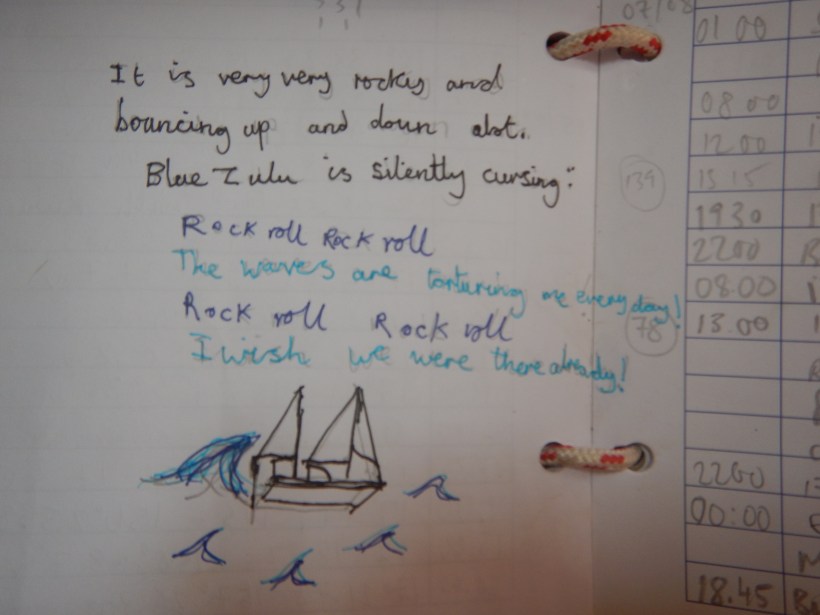 It is very very rocky and
bouncing up and down alot.
Blue Zulu is silently cursing:
Rock roll Rock roll
The waves are torturing me every day!
Rock roll Rock roll
I wish we were there already!
139
78
07/08
01 00
08 00
12 00
15 15
1930
2200
08.00
13.00
2200
00:00
18.45